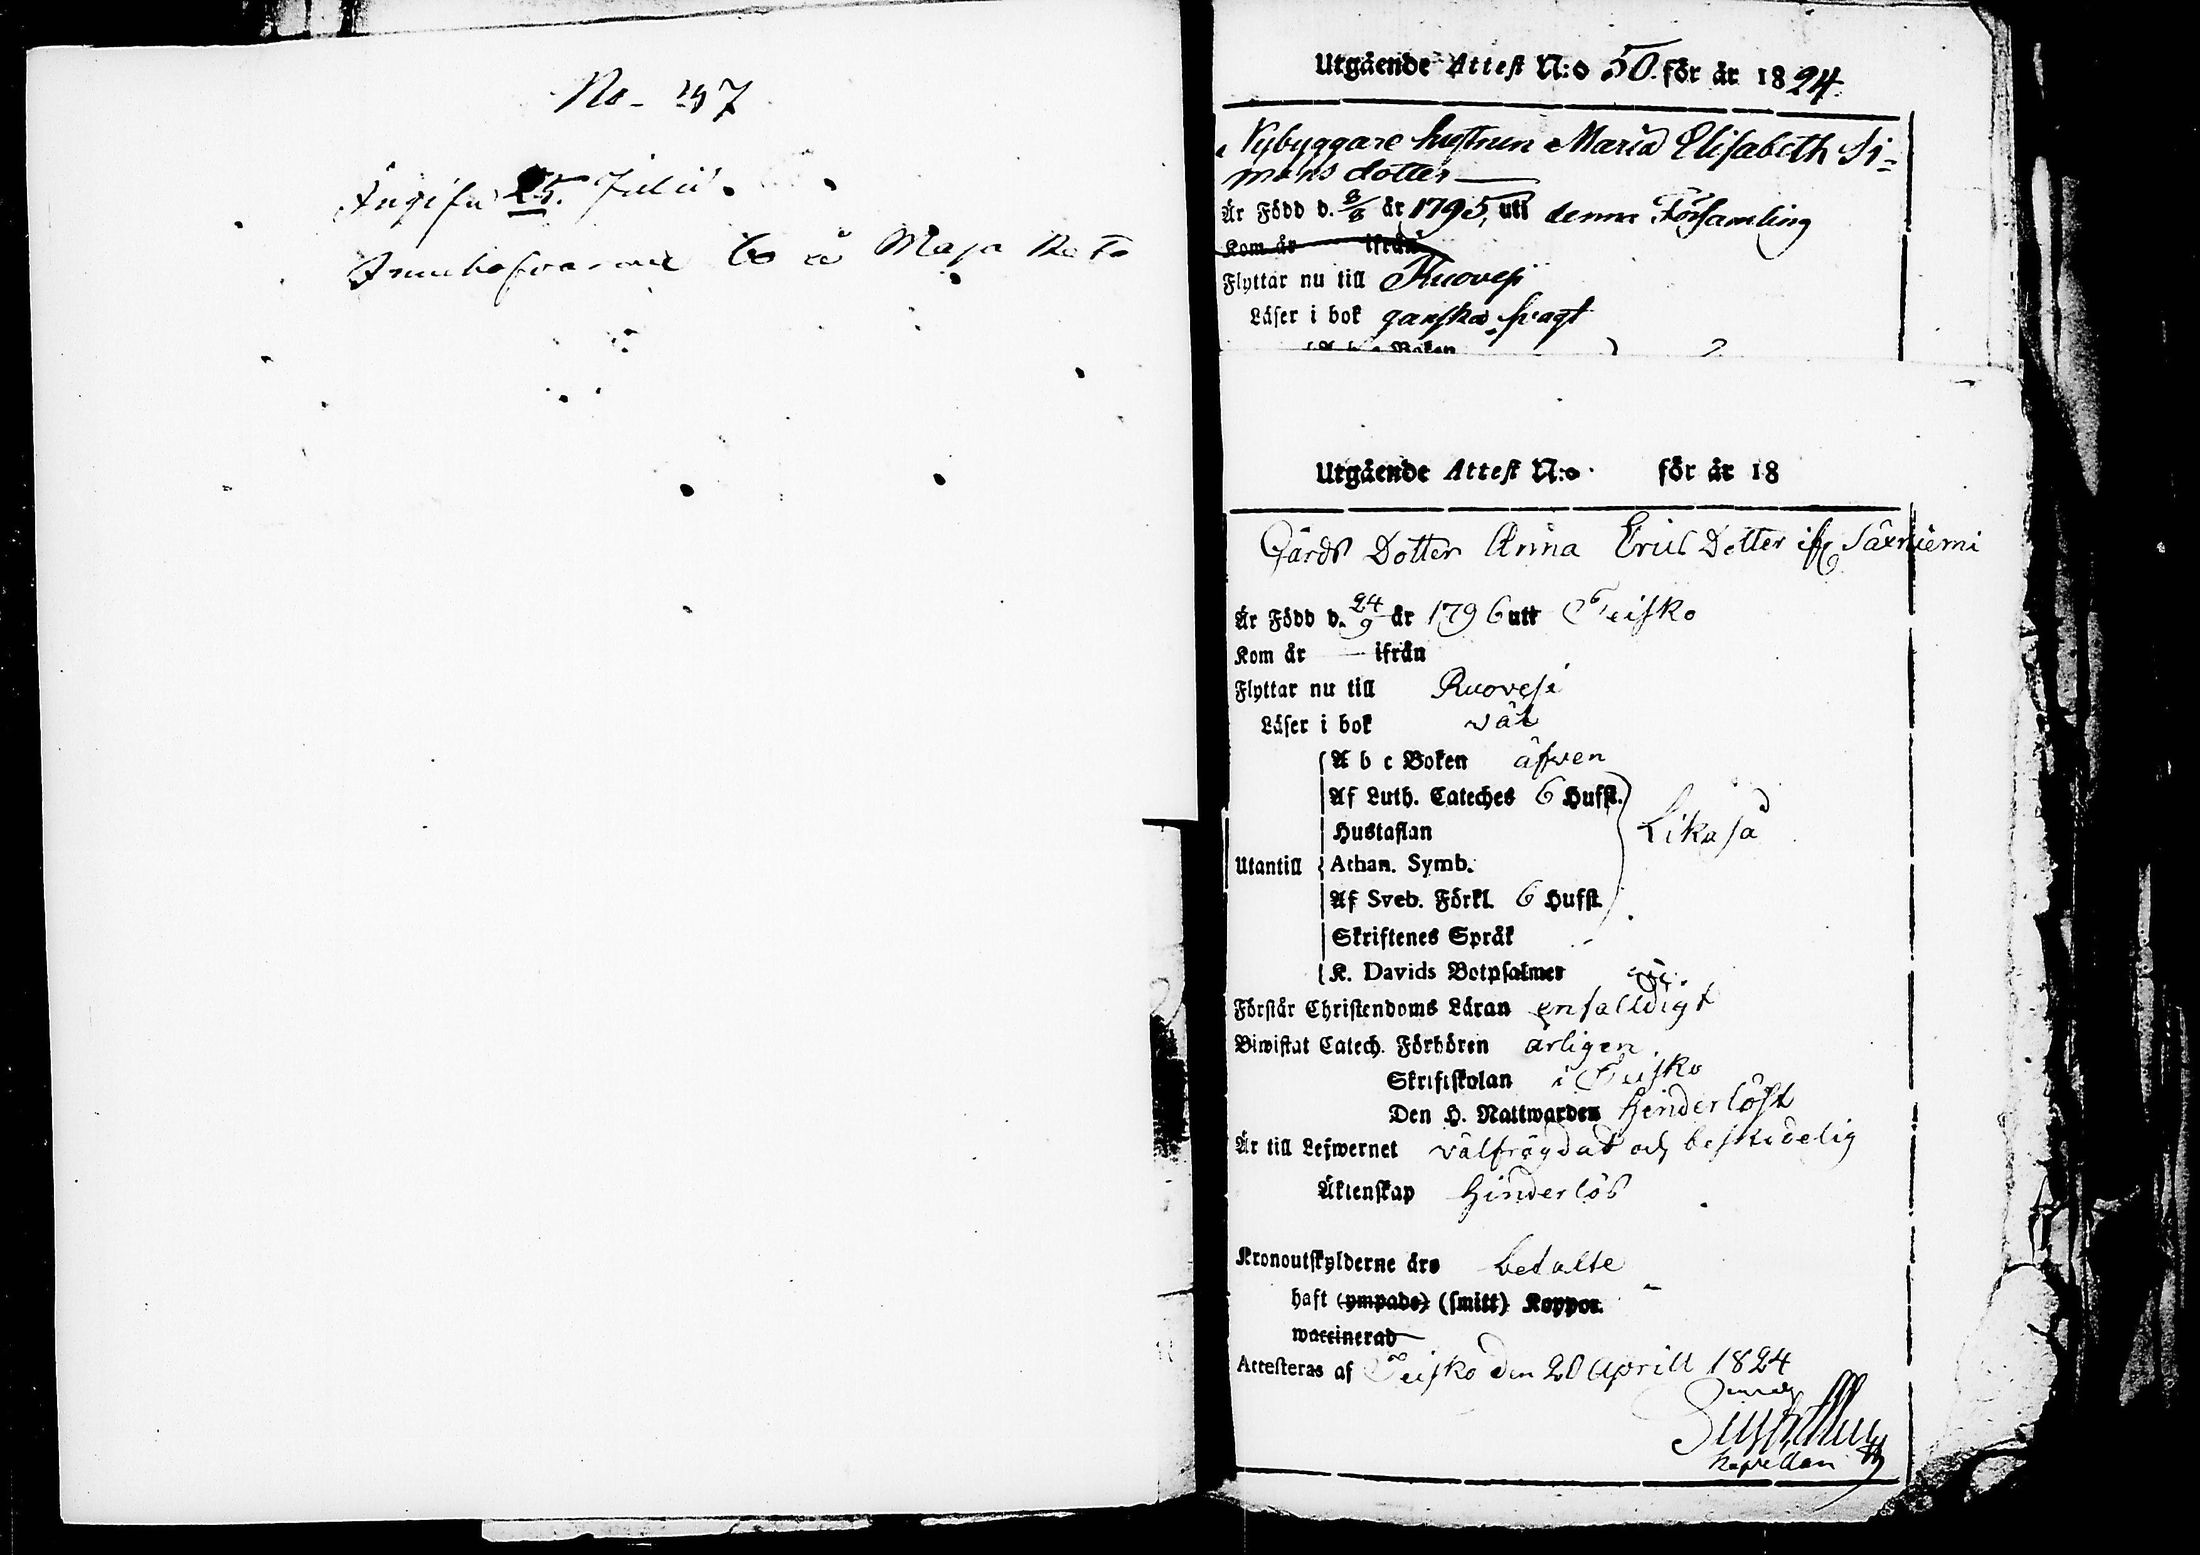 No 
Angifn 25. Julii
Maja
Utgående Attest N:o 50 för år 1824.
Nybyggare hustrun Maria Elisabeth Si-
mons dotter
Är Född d. 8/8 år 1795, uti denna Församling
Kom år ifrån
Flyttar nu till Ruovesi
Läser i bok ganska svagt
A b c Boken
Utgående Attest N:o för år 18
Gårds Dotter Anna Erics Dotter ifr Säxniemi
Är Född d. 24/9 år 1796 utt Teisko
Kom år — ifrån
Flyttar nu till Ruovesi
Läser i bok väl
A b c Boken äfven
Af Luth. Cateches 6 Hufst.
Hustaflan Lika så
Utantill Athan. Symb.
Af Sveb. Förkl. 6 Hufst.
Skriftenes Språk
K. Davids Botpsalmer
Förstår Christendoms Läran enfalldigt
Biwistat Catech. Förhören årligen
Skriftskolan i Teisko
Den H. Nattwarden hinderlöst
Är till Lefwernet välfrägdat och beskedelig
Äktenskap hinderlös
Kronoutskylderne äro betalte
haft (ympade) (smitt) Koppor.
waccinerad
Attesteras af Teisko den 20 Aprill 1824
Kapellan